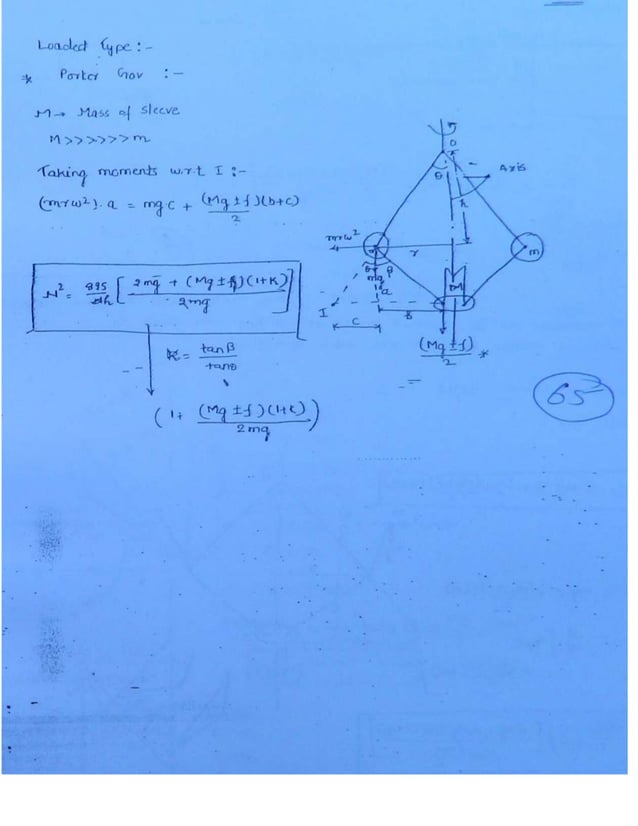 Loaded Type :-
* Porter Gov :-
M → Mass of sleeve
M >>>>>> m
Taking moments w.r.t I :-
(mrω²). a = mgc + (Mg ± f)(b+c)/2
N² = 895/h [ 2mg + (Mg ± f)(1+K) / 2mg ]
K = tanβ/tanθ
( 1+ (Mg ± f)(1+K) / 2mg )
O
θ
Axis
h
mrω²
r
m
m
θ β
mg
a
M
I
c
b
(Mg ± f)/2 *
65